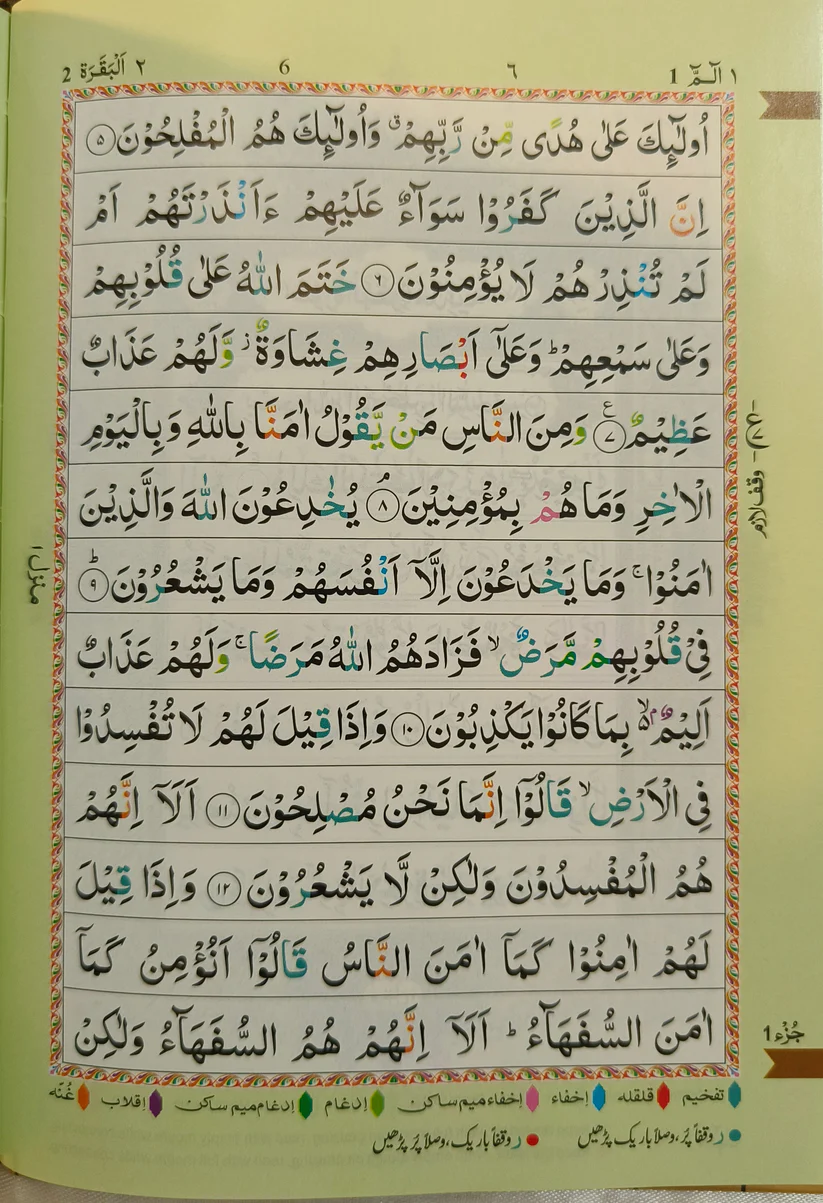 ١ الٓـمّٓ 1
٦
6
٢ اَلْبَقَرَة 2
اُولٰٓئِكَ عَلٰى هُدًى مِّنْ رَّبِّهِمْ ۗ وَاُولٰٓئِكَ هُمُ الْمُفْلِحُوْنَ ۝۵
اِنَّ الَّذِيْنَ كَفَرُوْا سَوَآءٌ عَلَيْهِمْ ءَاَنْذَرْتَهُمْ اَمْ
لَمْ تُنْذِرْهُمْ لَا يُؤْمِنُوْنَ ۝۶ خَتَمَ اللّٰهُ عَلٰى قُلُوْبِهِمْ
وَعَلٰى سَمْعِهِمْ ؕ وَعَلٰٓى اَبْصَارِهِمْ غِشَاوَةٌ ؗ وَّلَهُمْ عَذَابٌ
عَظِيْمٌ ۝۷ ع وَمِنَ النَّاسِ مَنْ يَّقُوْلُ اٰمَنَّا بِاللّٰهِ وَبِالْيَوْمِ
الْاٰخِرِ وَمَا هُمْ بِمُؤْمِنِيْنَ ۝۸ۘ يُخٰدِعُوْنَ اللّٰهَ وَالَّذِيْنَ
اٰمَنُوْا ۚ وَمَا يَخْدَعُوْنَ اِلَّاۤ اَنْفُسَهُمْ وَمَا يَشْعُرُوْنَ ۝۹ؕ
فِيْ قُلُوْبِهِمْ مَّرَضٌ ۙ فَزَادَهُمُ اللّٰهُ مَرَضًا ۚ وَلَهُمْ عَذَابٌ
اَلِيْمٌ ۢ ۙ بِمَا كَانُوْا يَكْذِبُوْنَ ۝۱۰ وَاِذَا قِيْلَ لَهُمْ لَا تُفْسِدُوْا
فِي الْاَرْضِ ۙ قَالُوْٓا اِنَّمَا نَحْنُ مُصْلِحُوْنَ ۝۱۱ اَلَآ اِنَّهُمْ
هُمُ الْمُفْسِدُوْنَ وَلٰكِنْ لَّا يَشْعُرُوْنَ ۝۱۲ وَاِذَا قِيْلَ
لَهُمْ اٰمِنُوْا كَمَآ اٰمَنَ النَّاسُ قَالُوْٓا اَنُؤْمِنُ كَمَآ
اٰمَنَ السُّفَهَآءُ ؕ اَلَآ اِنَّهُمْ هُمُ السُّفَهَآءُ وَلٰكِنْ
وقف لازم
منزل ۱
جُزْء 1
تفخیم قلقله إخفاء إخفاء میم ساكن إدغام إدغام میم ساكن إقلاب غُنّه
ر وقفاً پُر، وصلاً باریک پڑھیں ر وقفاً باریک، وصلاً پُر پڑھیں